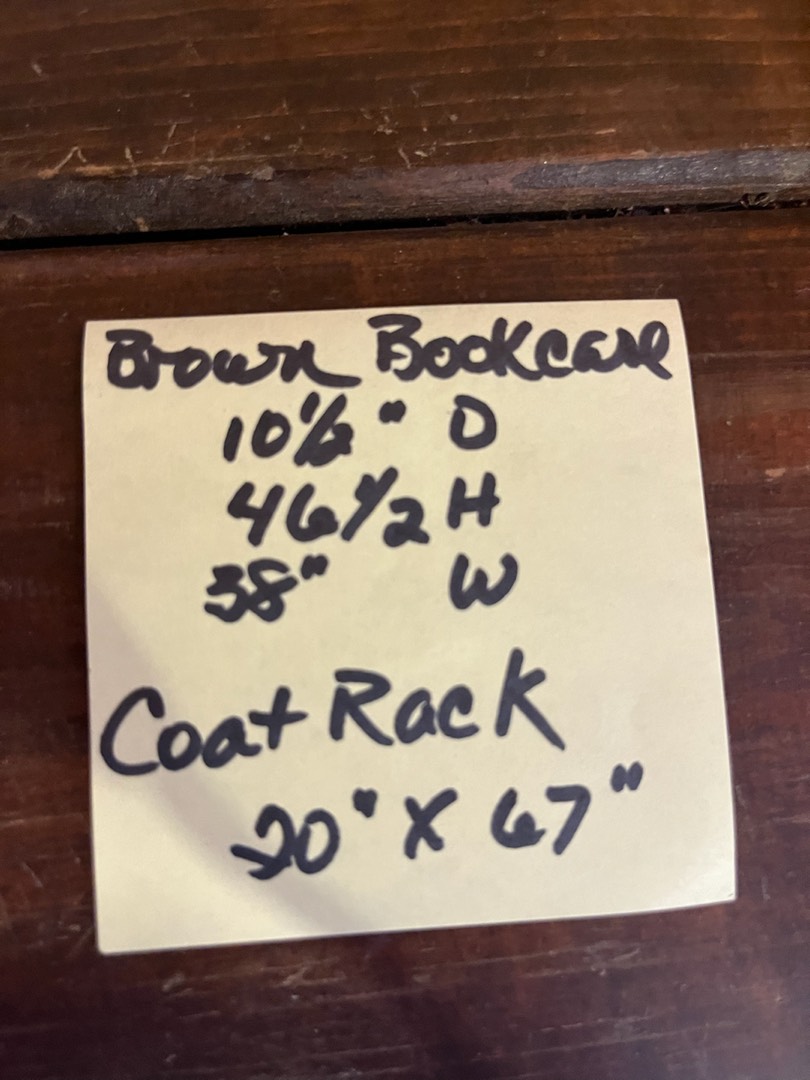 Brown Bookcase
10½" D
46½ H
38" W
Coat Rack
20" X 67"